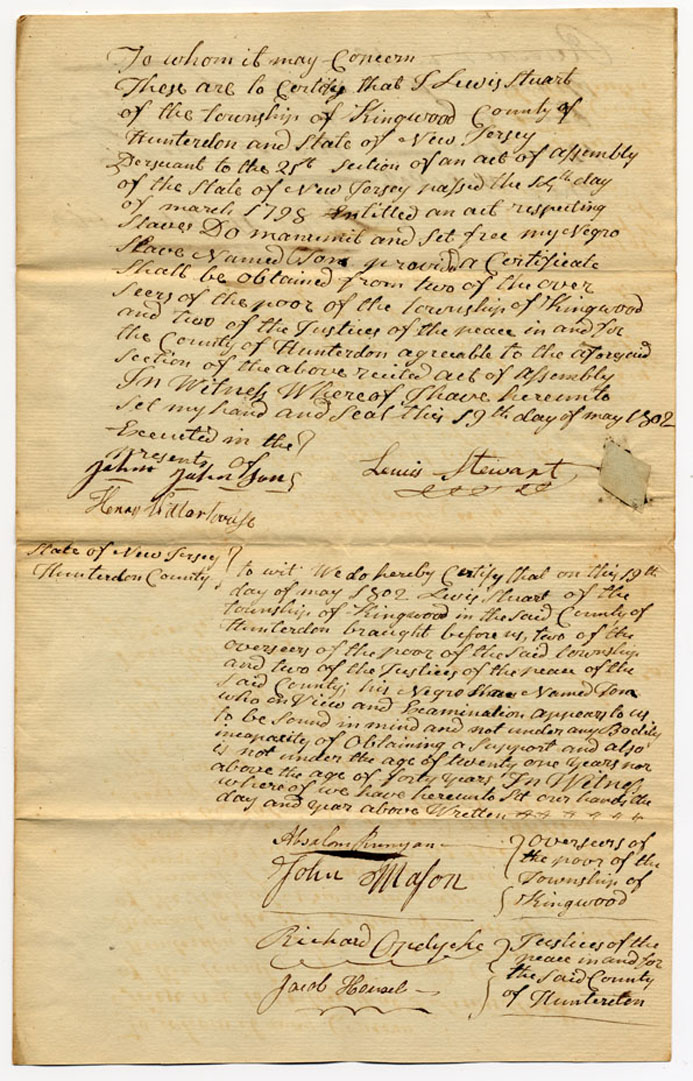 To whom it may Concern
These are to Certify that I Lewis Stuart
of the township of Kingwood County of
Hunterdon and State of New Jersey
Persuant to the 21st section of an act of assembly
of the State of New Jersey passed the 14th day
of march 1798 Entitled an act respecting
Slaves Do manumit and set free my Negro
Slave Named Tom provided a Certificate
shall be obtained from two of the over
seers of the poor of the township of Kingwood
and two of the Justices of the peace in and for
the County of Hunterdon agreable to the aforesaid
section of the above recited act of assembly
In Witness Whereof I have hereunto
set my hand and seal this 19th day of may 1802
Executed in the
presents of
John Johnson
Lewis Stewart
Henry
State of New Jersey
Hunterdon County
to wit We do hereby Certify that on this 19th
day of may 1802 Lewis Stuart of the
township of Kingwood in the Said County of
Hunterdon braught before us, two of the
overseers of the poor of the Said township
and two of the Justices of the peace of the
Said County; his Negro Slave Named Tom
who on View and Examination appears to us
to be sound in mind and not under any Bodily
incapasity of Obtaining a Support and also
is not under the age of twenty one years nor
above the age of forty years In Witness
where of we have hereunto Set our hands the
day and year above Wretten
Absalom Runyan
John Mason
Overseers of
the poor of the
Township of
Kingwood
Richard Opdycke
Jacob Housel
Justices of the
peace in and for
the Said County
of Hunterdon